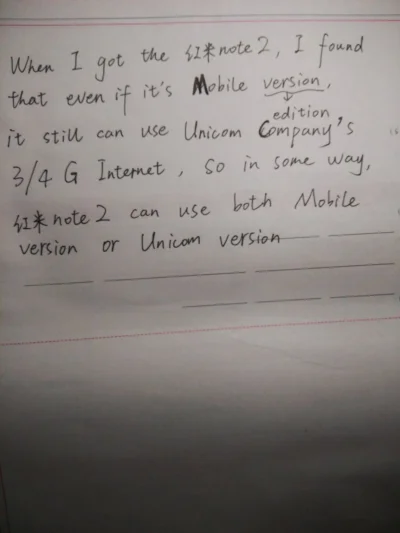 When I got the 红米note 2, I found
that even if it's Mobile version,
edition
it still can use Unicom Company's
3/4 G Internet, So in some way,
红米note 2 can use both Mobile
version or Unicom version